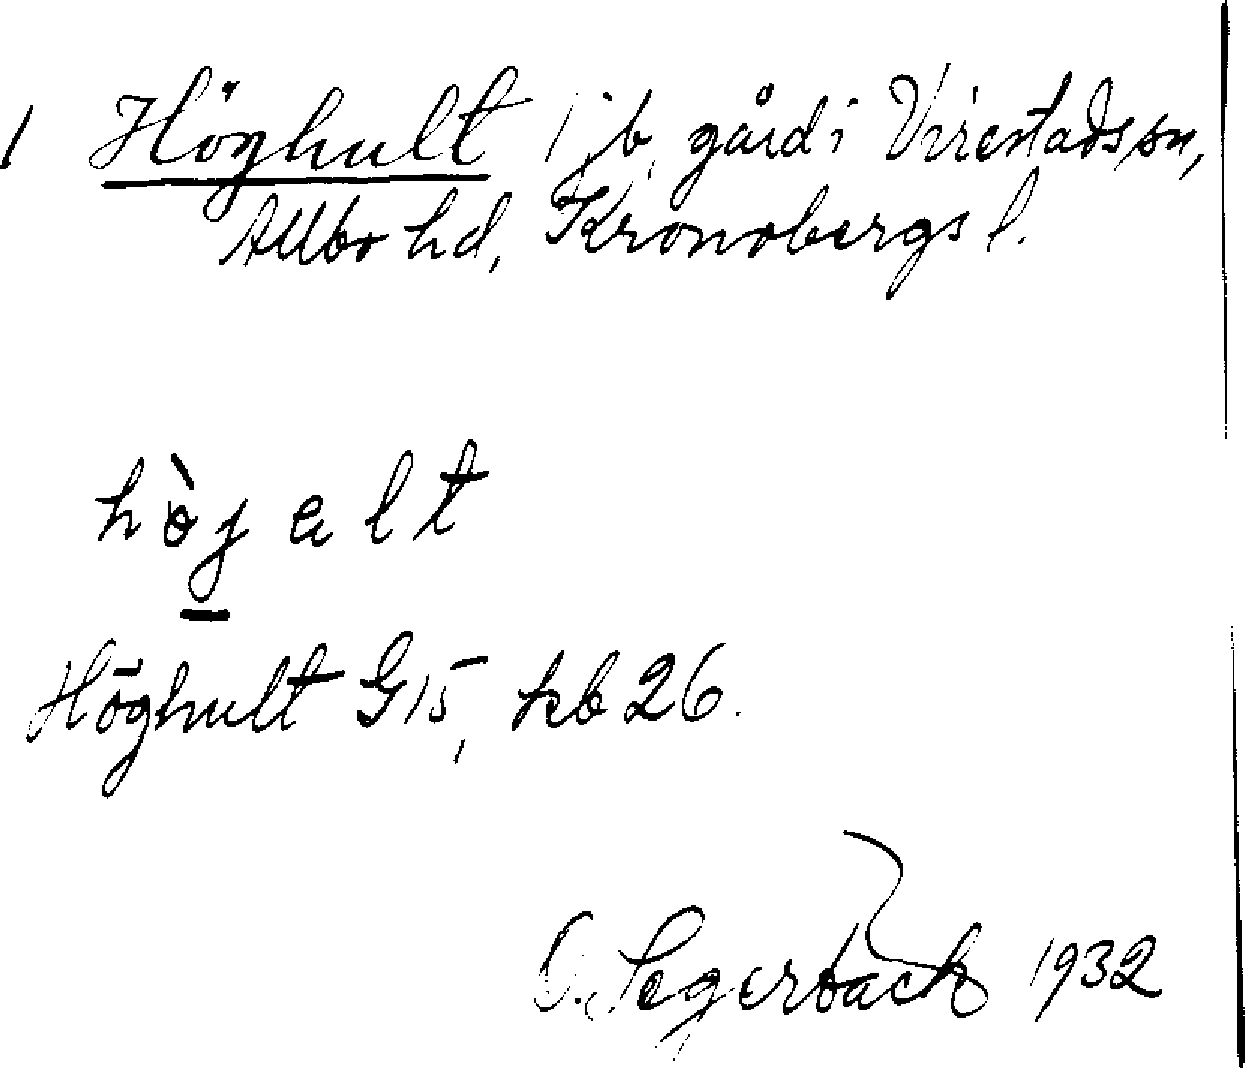 1 Höghult 1 jb. gård i Virestads sn,
Allbo hd, Kronobergs l.
hòjalt
Höghult G15, kb 26.
O. Segerbäck 1932